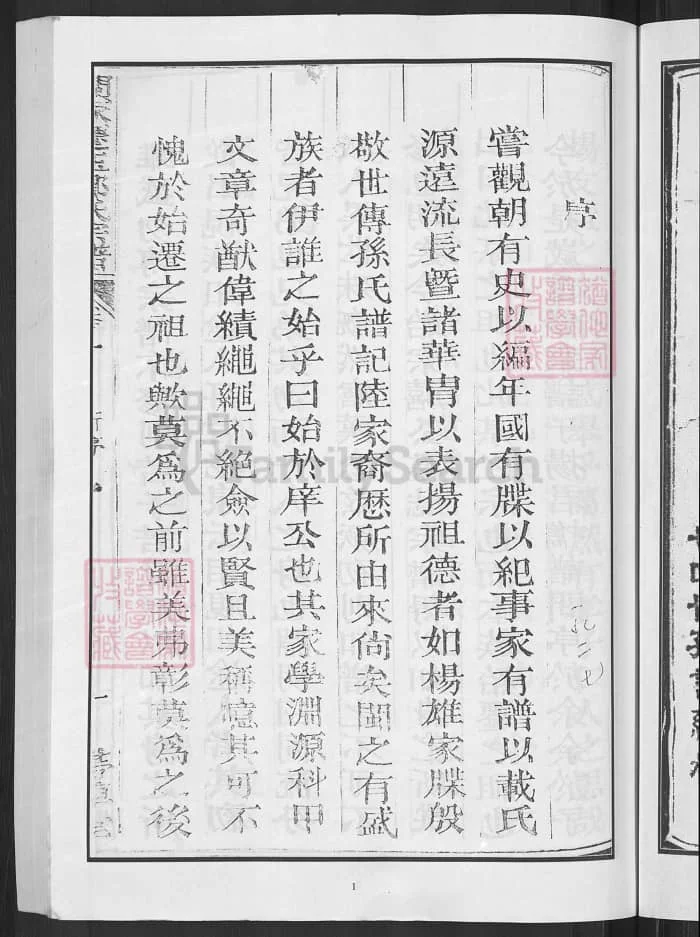 序
嘗觀朝有史以編年國有牒以紀事家有譜以載氏
源遠流長暨諸華胄以表揚祖德者如楊雄家牒殷
敬世傳孫氏譜記陸家裔歷所由來尙矣閩之有盛
族者伊誰之始乎曰始於庠公也其家學淵源科甲
文章奇猷偉績繩繩不絕僉以賢且美稱憶其可不
愧於始遷之祖也歟莫爲之前雖美弗彰莫爲之後
氏宗譜
一
FamilySearch
譜學會
收藏
譜學會
收藏
1